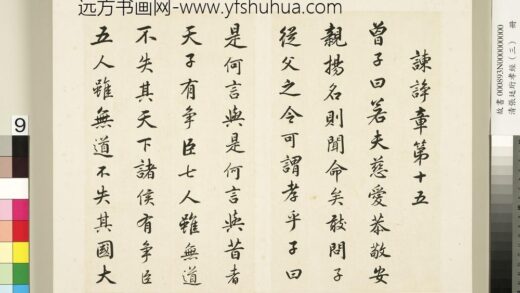 远方书画网-www.yfshuhua.com
諫諍章第十五
曾子曰若夫慈愛恭敬安
親揚名則聞命矣敢問子
從父之令可謂孝乎子曰
是何言與是何言與昔者
天子有争臣七人雖無道
不失其天下諸侯有争臣
五人雖無道不失其國大
故書000893N000000000
清張廷珩孝經（三） 冊
9